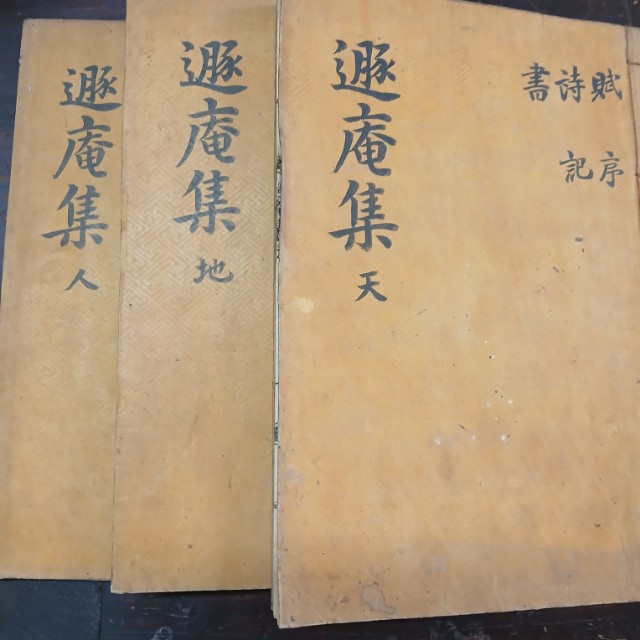 賦 序
詩 記
書
遯庵集 天
遯庵集 地
遯庵集 人